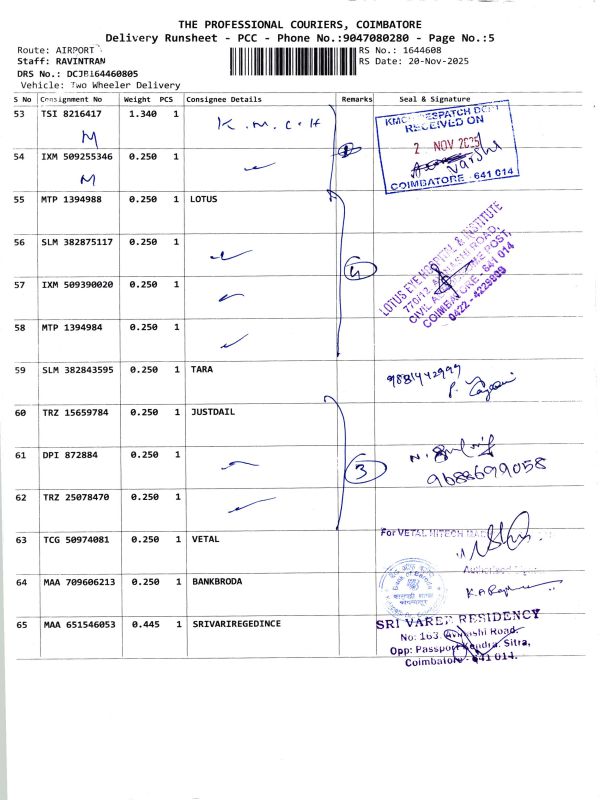 THE PROFESSIONAL COURIERS, COIMBATORE
Delivery Runsheet - PCC - Phone No.:9047080280 - Page No.:5
Route: AIRPORT
RS No.: 1644608
Staff: RAVINTRAN
RS Date: 20-Nov-2025
DRS No.: DCJB164460805
Vehicle: Two Wheeler Delivery
S No Consignment No Weight PCS Consignee Details Remarks Seal & Signature
53 TSI 8216417 1.340 1 K.M.C.H
M
KMCH DESPATCH DEPT
RECEIVED ON
2 NOV 2025
Varshi
COIMBATORE - 641 014
54 IXM 509255346 0.250 1
M
55 MTP 1394988 0.250 1 LOTUS
56 SLM 382875117 0.250 1
57 IXM 509390020 0.250 1
4
LOTUS EYE HOSPITAL & INSTITUTE
770/12, AVINASHI ROAD,
CIVIL AERODROME POST,
COIMBATORE - 641 014
0422 - 4229999
58 MTP 1394984 0.250 1
59 SLM 382843595 0.250 1 TARA
60 TRZ 15659784 0.250 1 JUSTDAIL
61 DPI 872884 0.250 1
3
9688699058
62 TRZ 25078470 0.250 1
63 TCG 50974081 0.250 1 VETAL
For VETAL HITECH
64 MAA 709606213 0.250 1 BANKBRODA
Bank of Baroda
65 MAA 651546053 0.445 1 SRIVARIREGEDINCE
SRI VAREE RESIDENCY
No: 163, Avinashi Road,
Opp: Passport Kendra, Sitra,
Coimbatore - 641 014.